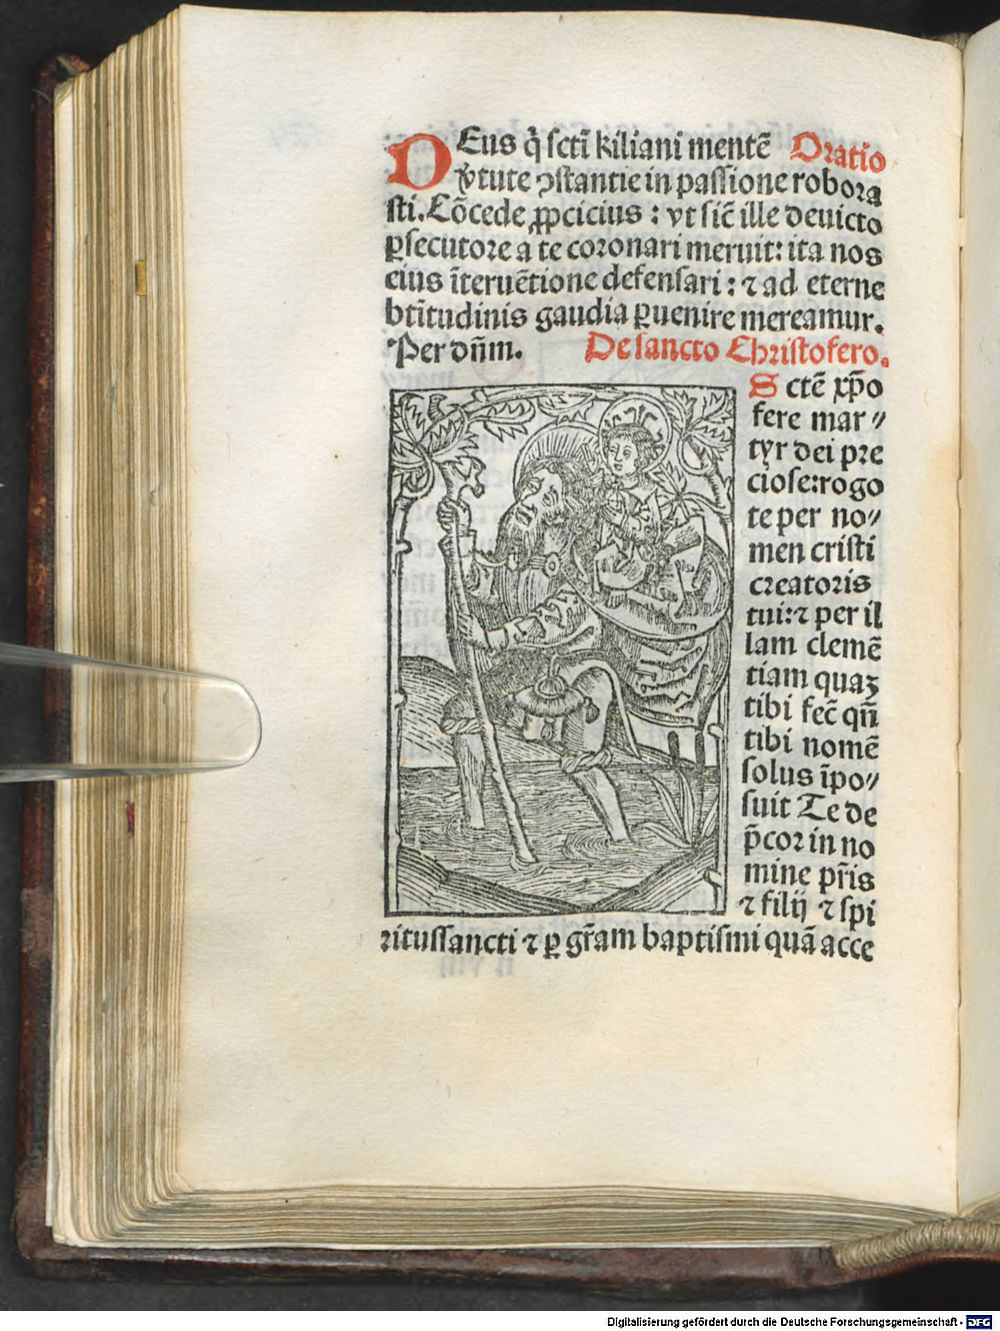 DEus q̃ sctĩ kiliani mentẽ Oratio
v̓tute ꝯstantie in passione robora
sti. Cõcede ꝓpcicius : vt sic̃ ille deuicto
ꝑsecutore a te coronari meruit: ita nos
eius ĩteruẽtione defensari : ⁊ ad eterne
btĩtudinis gaudia ꝑuenire mereamur.
Per dñm. De sancto Christofero.
S ctẽ xp̃o
fere mar⸗
tyr dei pre
ciose: rogo
te per no⸗
men cristi
creatoris
tui: ⁊ per il
lam clemẽ
tiam quaꝫ
tibi fec̃ qñ
tibi nomẽ
solus ĩpo⸗
suit Te de
p̃cor in no
mine pr̃is
⁊ filij ⁊ spi
ritussancti ⁊ ꝑ gr̃am baptismi quã acce
Digitalisierung gefördert durch die Deutsche Forschungsgemeinschaft - DFG